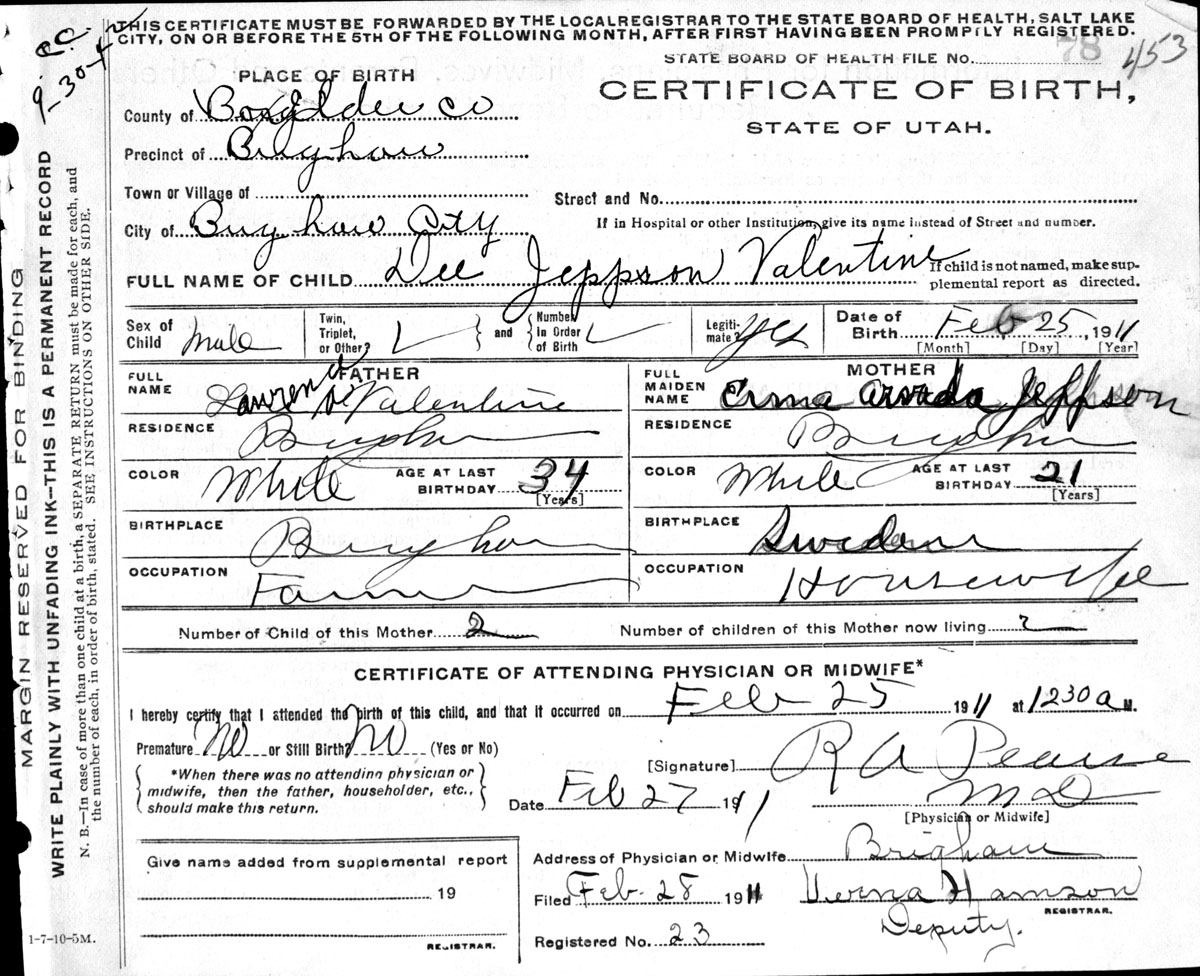 THIS CERTIFICATE MUST BE FORWARDED BY THE LOCAL REGISTRAR TO THE STATE BOARD OF HEALTH, SALT LAKE
CITY, ON OR BEFORE THE 5TH OF THE FOLLOWING MONTH, AFTER FIRST HAVING BEEN PROMPTLY REGISTERED.
9-30-4
STATE BOARD OF HEALTH FILE NO. 78 453
PLACE OF BIRTH
CERTIFICATE OF BIRTH,
STATE OF UTAH.
County of Boxelder Co
Precinct of Brigham
Town or Village of
Street and No.
City of Brigham City
If in Hospital or other Institution, give its name instead of Street and number.
FULL NAME OF CHILD Dee Jeppson Valentine
If child is not named, make sup-
plemental report as directed.
Sex of Child Male
Twin, Triplet, or Other?
and Number in Order of Birth
Legiti-mate? yes
Date of Birth Feb 25, 1911
[Month] [Day] [Year]
FATHER
FULL NAME Valentine
RESIDENCE Brigham
COLOR White AGE AT LAST BIRTHDAY 34 [Years]
BIRTHPLACE Brigham
OCCUPATION Farmer
MOTHER
FULL MAIDEN NAME Erma Jeppson
RESIDENCE Brigham
COLOR White AGE AT LAST BIRTHDAY 21 [Years]
BIRTHPLACE Sweden
OCCUPATION Housewife
Number of Child of this Mother 2 Number of children of this Mother now living 2
CERTIFICATE OF ATTENDING PHYSICIAN OR MIDWIFE*
I hereby certify that I attended the birth of this child, and that it occurred on Feb 25 1911 at 1230 a M.
Premature No or Still Birth? No (Yes or No)
*When there was no attending physician or
midwife, then the father, householder, etc.,
should make this return.
[Signature] R A Pearse
M D
[Physician or Midwife]
Date Feb 27 1911
Give name added from supplemental report
19
REGISTRAR.
Address of Physician or Midwife Brigham
Filed Feb-28 1911 Verna Hamson
REGISTRAR.
Deputy.
Registered No. 23
1-7-10-5M.
MARGIN RESERVED FOR BINDING
WRITE PLAINLY WITH UNFADING INK—THIS IS A PERMANENT RECORD
N. B.—In case of more than one child at a birth, a SEPARATE RETURN must be made for each, and
the number of each, in order of birth, stated. SEE INSTRUCTIONS ON OTHER SIDE.